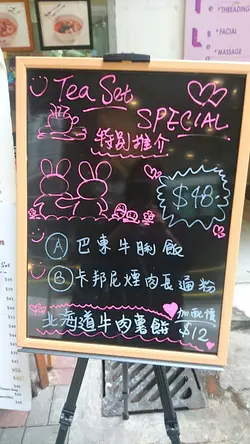 Tea Set
SPECIAL
特別推介
$48.-
Ⓐ 巴東牛脷飯
Ⓑ 卡邦尼煙肉長通粉
北海道牛肉薯餅 加配價
$12
THREADING
FACIAL
MASSAGE